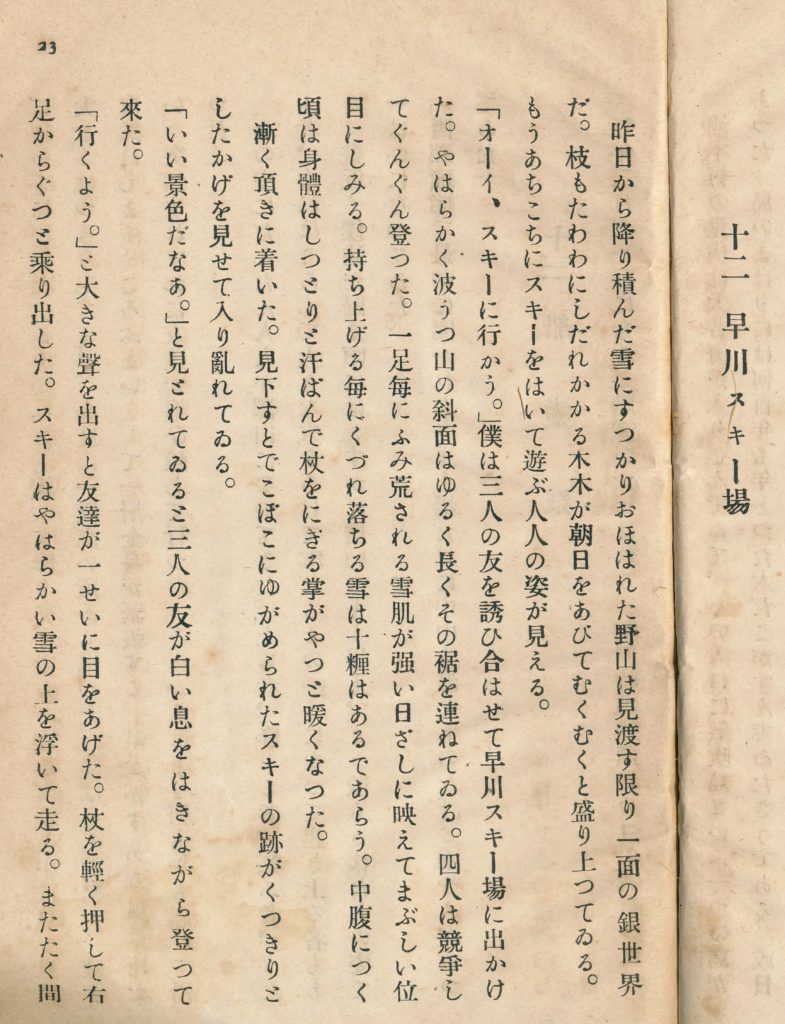 十二 早川スキー場
昨日から降り積んだ雪にすつかりおほはれた野山は見渡す限り一面の銀世界
だ。枝もたわわにしだれかかる木木が朝日をあびてむくむくと盛り上つてゐる。
もうあちこちにスキーをはいて遊ぶ人人の姿が見える。
「オーイ、スキーに行かう。」僕は三人の友を誘ひ合はせて早川スキー場に出かけ
た。やはらかく波うつ山の斜面はゆるく長くその裾を連ねてゐる。四人は競爭し
てぐんぐん登つた。一足每にふみ荒される雪肌が强い日ざしに映えてまぶしい位
目にしみる。持ち上げる每にくづれ落ちる雪は十糎はあるであらう。中腹につく
頃は身體はしつとりと汗ばんで杖をにぎる掌がやつと暖くなつた。
漸く頂きに着いた。見下すとでこぼこにゆがめられたスキーの跡がくつきりと
したかげを見せて入り亂れてゐる。
「いい景色だなあ。」と見とれてゐると三人の友が白い息をはきながら登つて
來た。
「行くよう。」と大きな聲を出すと友達が一せいに目をあげた。杖を輕く押して右
足からぐつと乘り出した。スキーはやはらかい雪の上を浮いて走る。またたく間
23